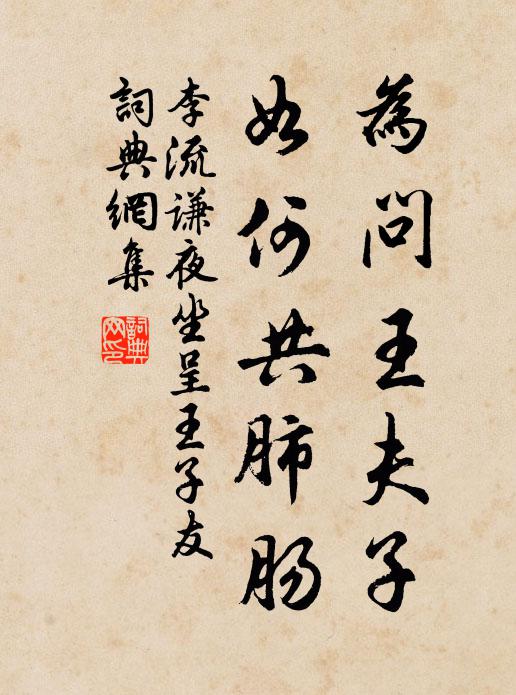 為問王夫子
如何共肺腸
李流谦夜坐呈王子友
詞典網集
詞典網印